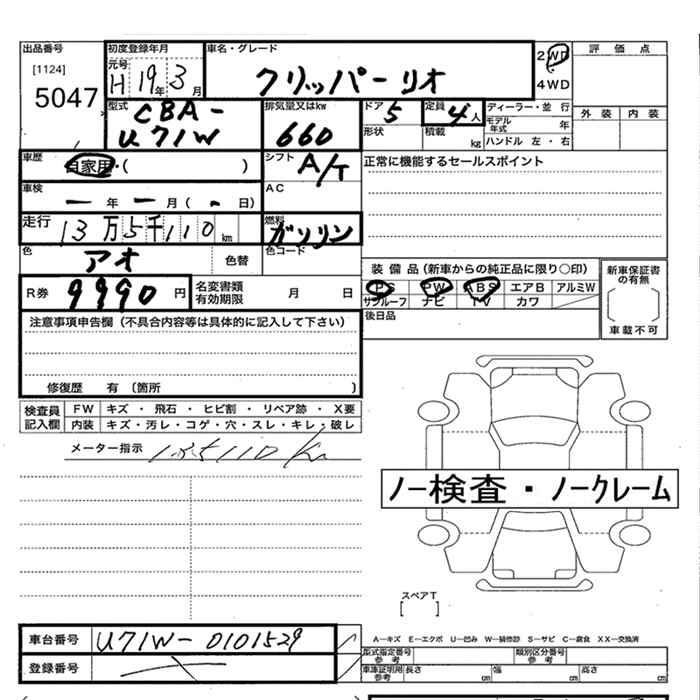 出品番号 初度登録年月 車名・グレード 2WD 評価点
[1124] 元号 H 19年 3月 クリッパーリオ 4WD
5047 型式 CBA-U71W 排気量又はkw 660 ドア 5 定員 4人 ディーラー・並 行 外装 内装
形状 積載 kg モデル年式 年
ハンドル 左・右
車歴 自家用・( ) シフト A/T 正常に機能するセールスポイント
車検 ー年ー月(・日) AC
走行 13万5千110km 燃料 ガソリン
色 アオ 色替 色コード
装備品(新車からの純正品に限り○印) 新車保証書の有無
R券 9990円 名変書類有効期限 月 日 PS PW ABS エアB アルミW
サンルーフ ナビ TV カワ 車載不可
注意事項申告欄(不具合内容等は具体的に記入して下さい) 後日品
修復歴 有〔箇所 〕
検査員記入欄 FW キズ・飛石・ヒビ割・リペア跡・X要
内装 キズ・汚レ・コゲ・穴・スレ・キレ・破レ
メーター指示 135110Km
ノー検査・ノークレーム
スペアT
[ ]
車台番号 U71W-0101529 A―キズ E―エクボ U―凹み W―補修跡 S―サビ C―腐食 XX―交換済
型式指定番号 参考 類別区分番号 参考
登録番号 車庫証明用 参考 長さ cm 幅 cm 高さ cm